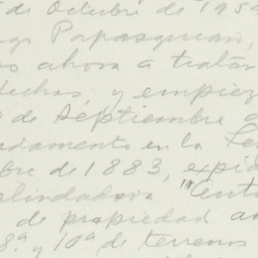 de Octubre de 195
Papasquiaro,
ahora a tratar
hechos y empie
de Septiembre
damento en la
bre de 1883, expid
lindadora "Cent
de propiedad a
8ª y 10ª de terrenos